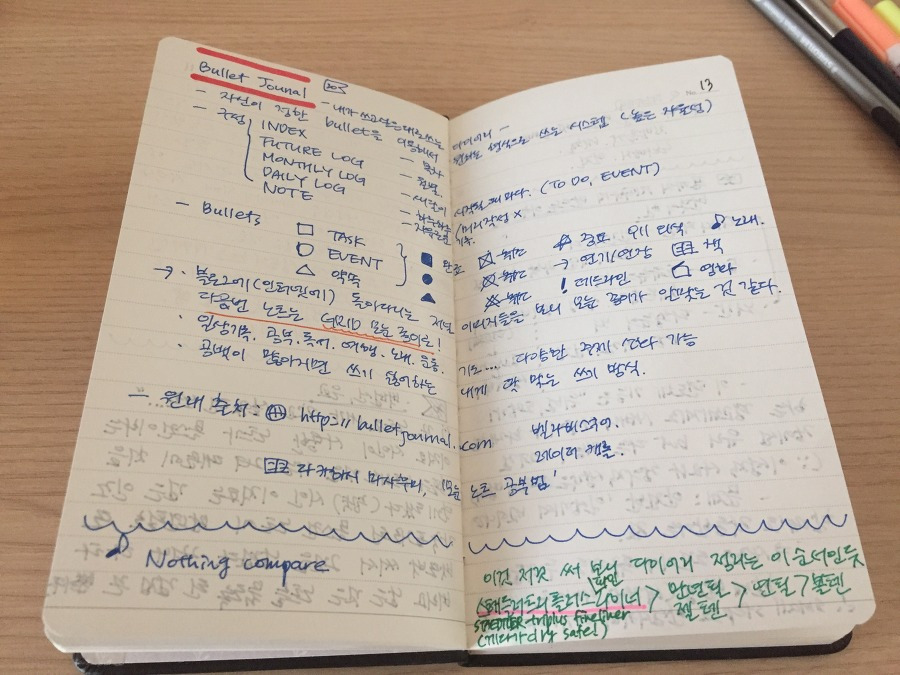 Bullet Jounal
13
- 자신이 정한 bullet을 이용해서
- 내가 쓰고싶은대로 쓰는 다이어리 -
원하는 형식으로 쓰는 시스템 (높은 자유성)
- 구성
INDEX
FUTURE LOG
MONTHLY LOG
DAILY LOG
NOTE
시작될 때마다. (TO DO, EVENT)
(미리작성 x
- Bullets
□ TASK
EVENT
△ 약속
■ 완료
●
▲
중요
→ 연기/연장
! 데드라인
노래.
책
영화
→ · 블로그에(인터넷에) 돌아다니는 저널 이미지들을 보니 모눈 종이가 알맞는 것 같다.
다음번 노트는 GRID 모눈 종이로!
· 일상기록, 공부, 독서, 여행, 노래, 운동, 기도... 다양한 주제 쓰다 가능
· 공백이 많아지면 쓰기 싫어하는 내게 딱 맞는 쓰기 방식.
- 원래 출처: http://bulletjournal.com
모눈 노트 공부법
Nothing compare
이건 저것 써 보니 다이어리 정리는 이 순서인듯
스테들러 트리플러스 파인라이너 > 만년필 > 연필 > 볼펜
젤펜
STAEDTLER triplus fineliner
(게다가 dry safe!)